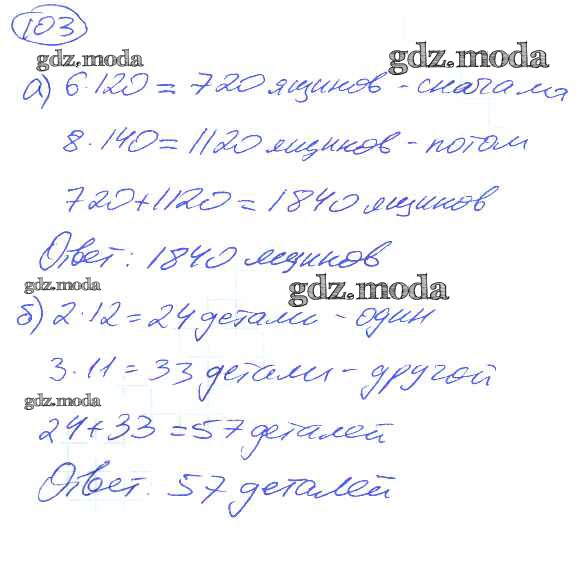 103
gdz.moda
gdz.moda
а) 6·120 = 720 ящиков - сначала
8·140 = 1120 ящиков - потом
720+1120 = 1840 ящиков
Ответ: 1840 ящиков
gdz.moda
gdz.moda
б) 2·12 = 24 детали - один
3·11 = 33 детали - другой
gdz.moda
24+33 = 57 деталей
Ответ. 57 деталей